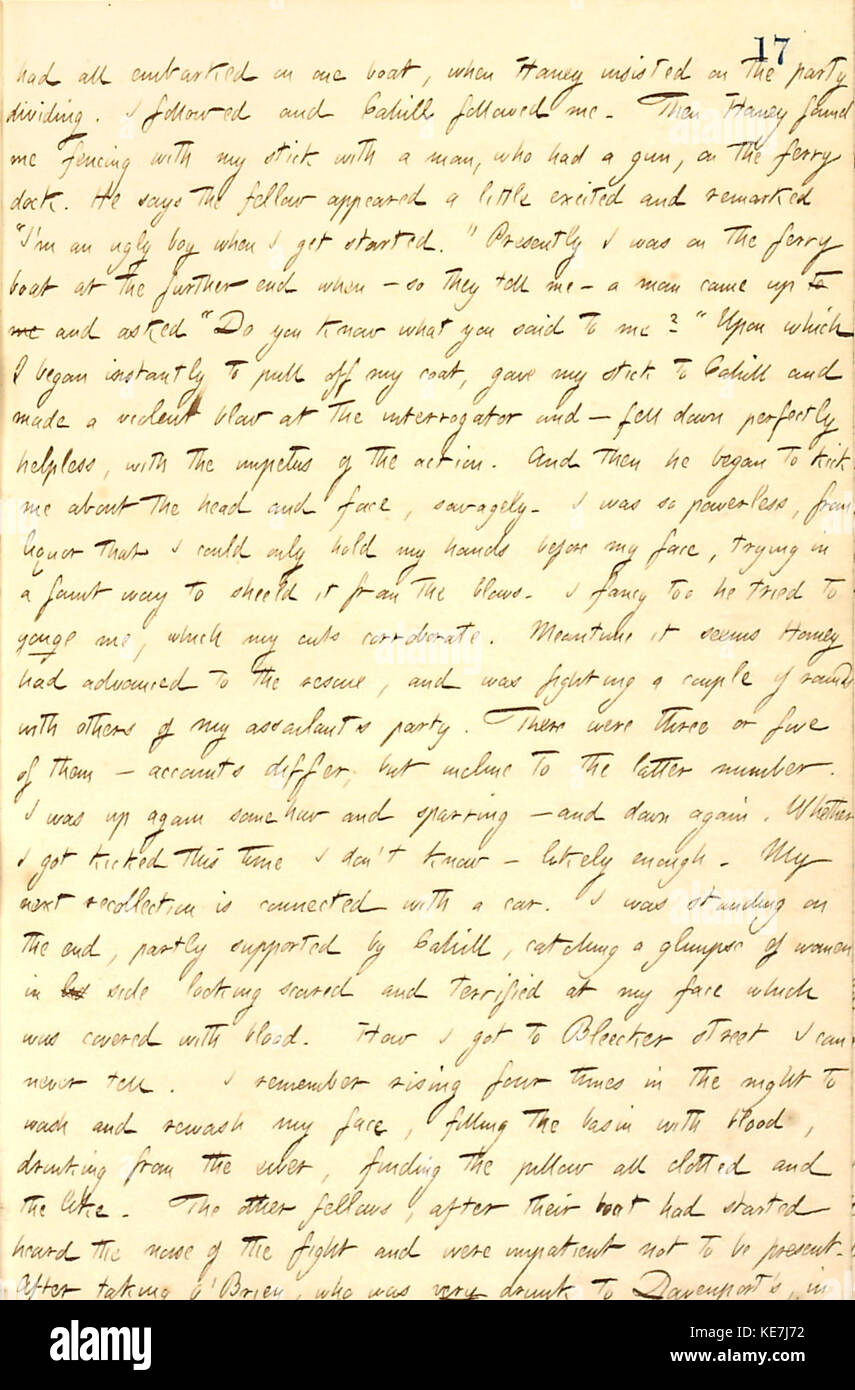 17
had all embarked on one boat, when Haney insisted on the party
dividing. I followed and Cahill followed me. Then Haney found
me fencing with my stick with a man, who had a gun, on the ferry
dock. He says the fellow appeared a little excited and remarked
"I'm an ugly boy when I get started." Presently I was on the ferry
boat at the further end when — so they tell me — a man came up to
me and asked "Do you know what you said to me?" Upon which
I began instantly to pull off my coat, gave my stick to Cahill and
made a violent blow at the interrogator and — fell down perfectly
helpless, with the impetus of the action. And then he began to kick
me about the head and face, savagely. I was so powerless, from
liquor that I could only hold my hands before my face, trying in
a faint way to sheeld it from the blows. I fancy too he tried to
gouge me, which my cuts corroborate. Meantime it seems Haney
had advanced to the rescue, and was fighting a couple of rounds
with others of my assailant's party. There were three or five
of them — accounts differ, but incline to the latter number.
I was up again some how and sparring — and down again. Whether
I got kicked this time I don't know — likely enough. My
next recollection is connected with a car. I was standing on
the end, partly supported by Cahill, catching a glimpse of women
in side looking scared and terrified at my face which
was covered with blood. How I got to Bleecker street I can
never tell. I remember rising four times in the night to
wash and rewash my face, filling the basin with blood,
drinking from the ewer, finding the pillow all clotted and
the like. The other fellows, after their boat had started
heard the noise of the fight and were impatient not to be present.
After taking O'Brien, who was very drunk to Davenport's, in
alamy
alamy
Image ID: KE7J72
www.alamy.com